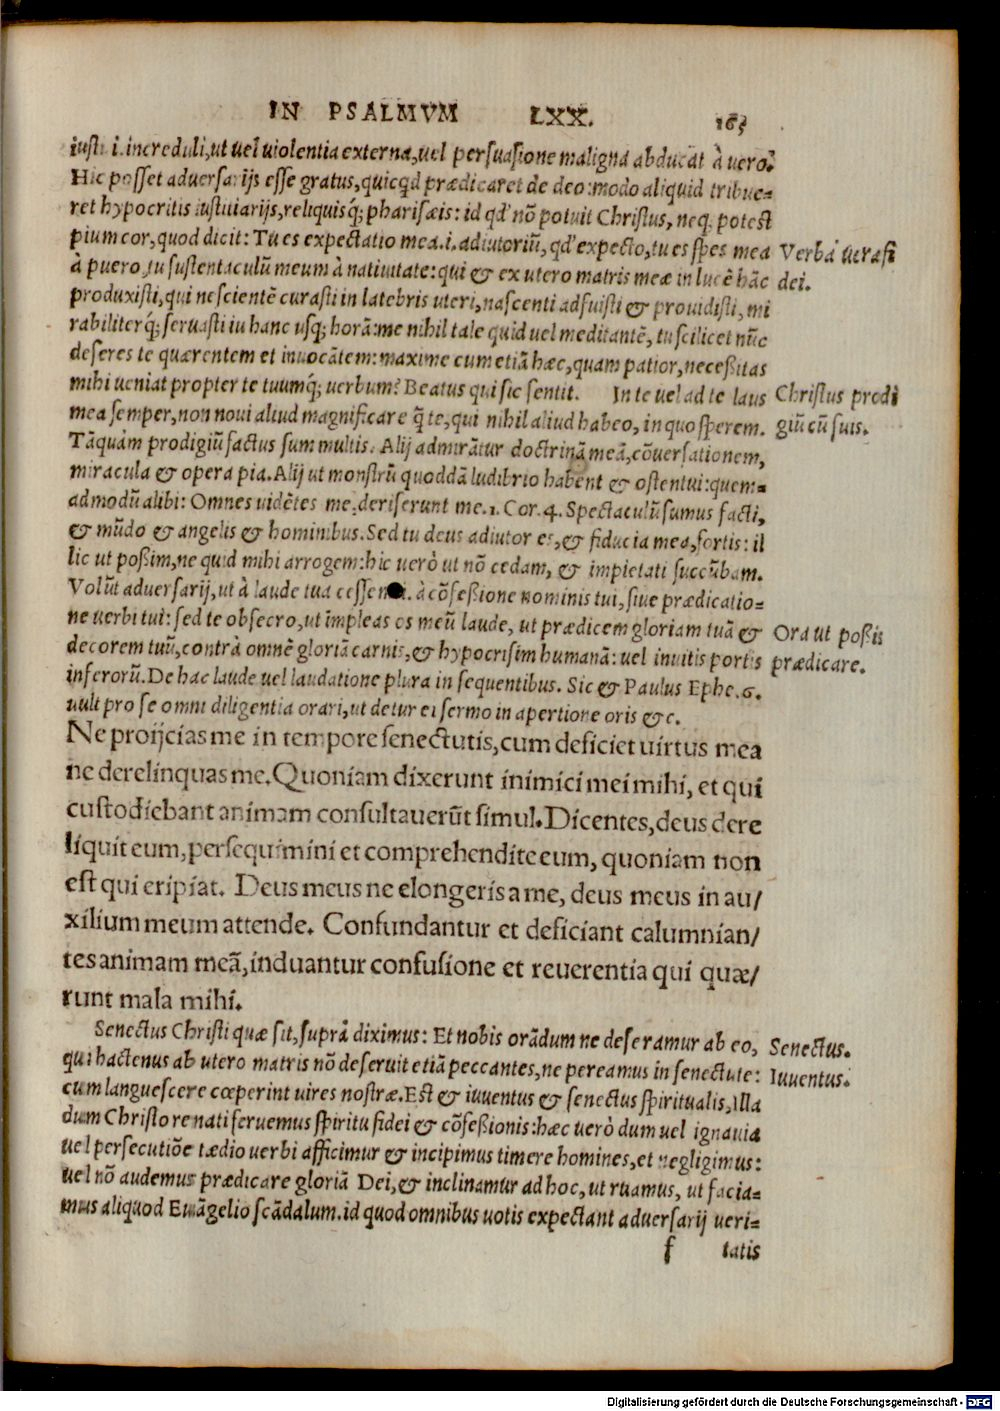 IN PSALMVM LXX. 165
iusti i.increduli,ut uel uiolentia externa,uel persuasione maligna abducat à uero?
Hic posset aduersarijs esse gratus,quicqd prædicaret de deo:modo aliquid tribue=
ret hypocritis iustitiarijs,reliquisq; pharisæis: id qd' nõ potuit Christus, neq; potest
pium cor,quod dicit: Tu es expectatio mea.i.adiutoriũ,qd' expecto,tu es spes mea
Verba ueræ fi
à puero,tu sustentaculũ meum à natiuitate:qui & ex utero matris meæ in lucẽ hãc
dei.
produxisti,qui nescientẽ curasti in latebris uteri,nascenti adfuisti & prouidisti, mi
rabiliterq; seruasti in hanc usq; horã:me nihil tale quid uel meditantẽ, tu scilicet nũc
deseres te quærentem et inuocãtem:maxime cum etiã hæc,quam patior,necessitas
mihi ueniat propter te tuumq; uerbum? Beatus qui sic sentit. In te uel ad te laus
Christus prodi
mea semper,non noui aliud magnificare q̃ te,qui nihil aliud habeo, in quo sperem.
giũ cũ suis.
Tãquàm prodigiũ factus sum multis. Alij admirãtur doctrinã meã,cõuersationem,
miracula & opera pia.Alij ut monstrũ quoddã ludibrio habent & ostentui:quem=
admodũ alibi: Omnes uidẽtes me,deriserunt me.1. Cor.4. Spectaculũ sumus facti,
& mũdo & angelis & hominibus.Sed tu deus adiutor es,& fiducia mea,fortis: il
lic ut possim,ne quid mihi arrogem:hic uerò ut nõ cedam, & impietati succũbam.
Volũt aduersarij,ut à laude tua cessem .i. à cõfessione nominis tui,siue prædicatio=
ne uerbi tui: sed te obsecro,ut impleas os meũ laude, ut prædicem gloriam tuã &
Ora ut possis
decorem tuũ,contrà omnẽ gloriã carnis,& hypocrisim humanã: uel inuitis portis
prædicare.
inferorũ.De hac laude uel laudatione plura in sequentibus. Sic & Paulus Ephe.6.
uult pro se omni diligentia orari,ut detur ei sermo in apertione oris &c.
Ne proijcias me in tempore senectutis,cum deficiet uirtus mea
ne derelinquas me.Quoniam dixerunt inimici mei mihi, et qui
custodiebant animam consultauerũt simul.Dicentes,deus dere
liquit eum,persequimini et comprehendite eum, quoniam non
est qui eripiat. Deus meus ne elongeris a me, deus meus in au/
xilium meum attende. Confundantur et deficiant calumnian/
tes animam meã,induantur confusione et reuerentia qui quæ/
runt mala mihi.
Senectus Christi quæ sit,suprà diximus: Et nobis orãdum ne deseramur ab eo,
Senectus.
qui hactenus ab utero matris nõ deseruit etiã peccantes,ne pereamus in senectute:
Iuuentus.
cum languescere cœperint uires nostræ.Est & iuuentus & senectus spiritualis,illa
dum Christo renati feruemus spiritu fidei & cõfessionis:hæc uerò dum uel ignauia
uel persecutiõe tædio uerbi afficimur & incipimus timere homines,et negligimus:
uel nõ audemus prædicare gloriã Dei,& inclinamur ad hoc, ut ruamus, ut facia=
mus aliquod Euãgelio scãdalum.id quod omnibus uotis expectant aduersarij ueri=
f tatis
Digitalisierung gefördert durch die Deutsche Forschungsgemeinschaft - DFG